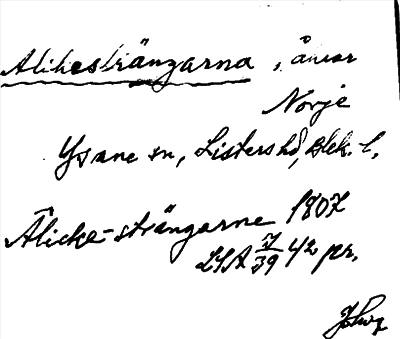 Alikesträngarna, åkrar
Norje
Ysane sn, Listers hd, Blek. l.
Älicke-strängarne 1807
LSA 7/39 42 pr.